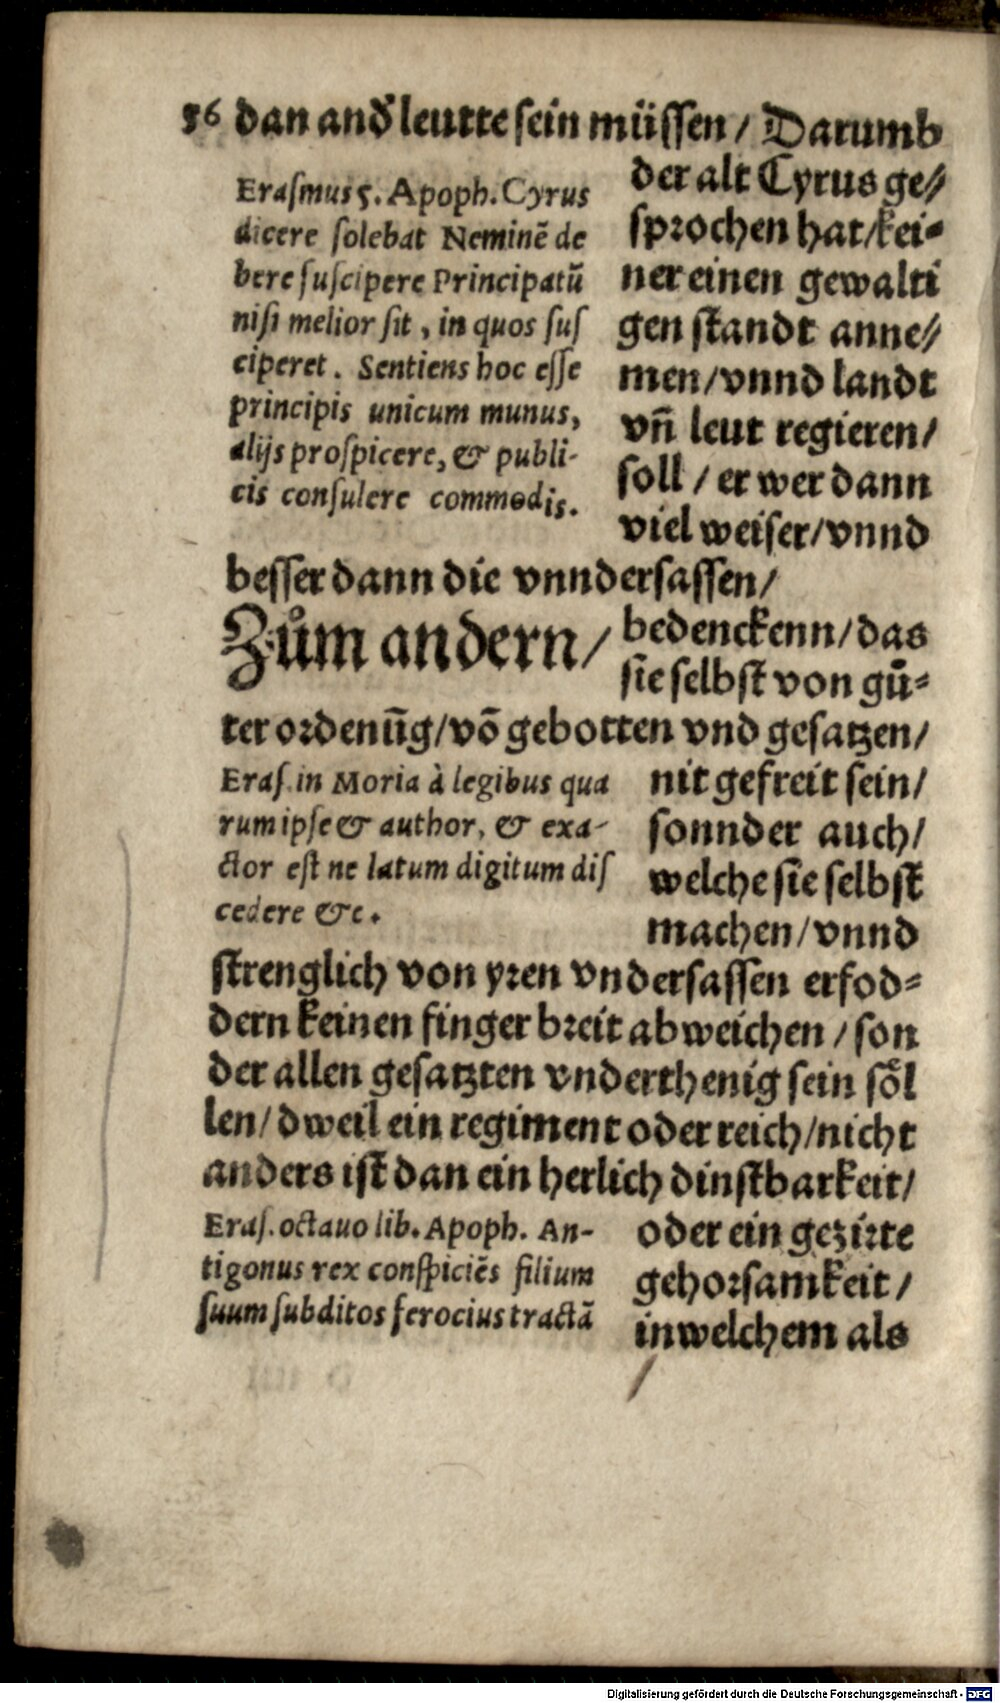 56 dan and̕ leutte sein müssen / Darumb
Eraſmus 5. Apoph. Cyrus
dicere ſolebat Neminē de
bere ſuſcipere Principatū
niſi melior ſit , in quos ſuſ
ciperet . Sentiens hoc eſſe
principis unicum munus,
alijs proſpicere, & publi-
cis conſulere commodis.
der alt Cyrus ge//
sprochen hat/kei=
ner einen gewalti
gen standt anne//
men/vnnd landt
vñ leut regieren/
soll / er wer dann
viel weiser/vnnd
besser dann die vnndersassen/
Zům andern/ bedenckenn/das
sie selbst von gů=
ter ordenūg/vō gebotten vnd gesatzen/
Eraſ. in Moria à legibus qua
rum ipſe & author, & exa-
ctor eſt ne latum digitum diſ
cedere &c.
nit gefreit sein/
sonnder auch/
welche sie selbst
machen/vnnd
strenglich von yren vndersassen erfod=
dern keinen finger breit abweichen / son
der allen gesatzten vnderthenig sein söl
len/dweil ein regiment oder reich/nicht
anders ist dan ein herlich dinstbarkeit/
Eraſ. octauo lib. Apoph. An-
tigonus rex conſpiciēs filium
ſuum ſubditos ferocius tractā
oder ein gezirte
gehorsamkeit /
in welchem als
Digitalisierung gefördert durch die Deutsche Forschungsgemeinschaft - DFG